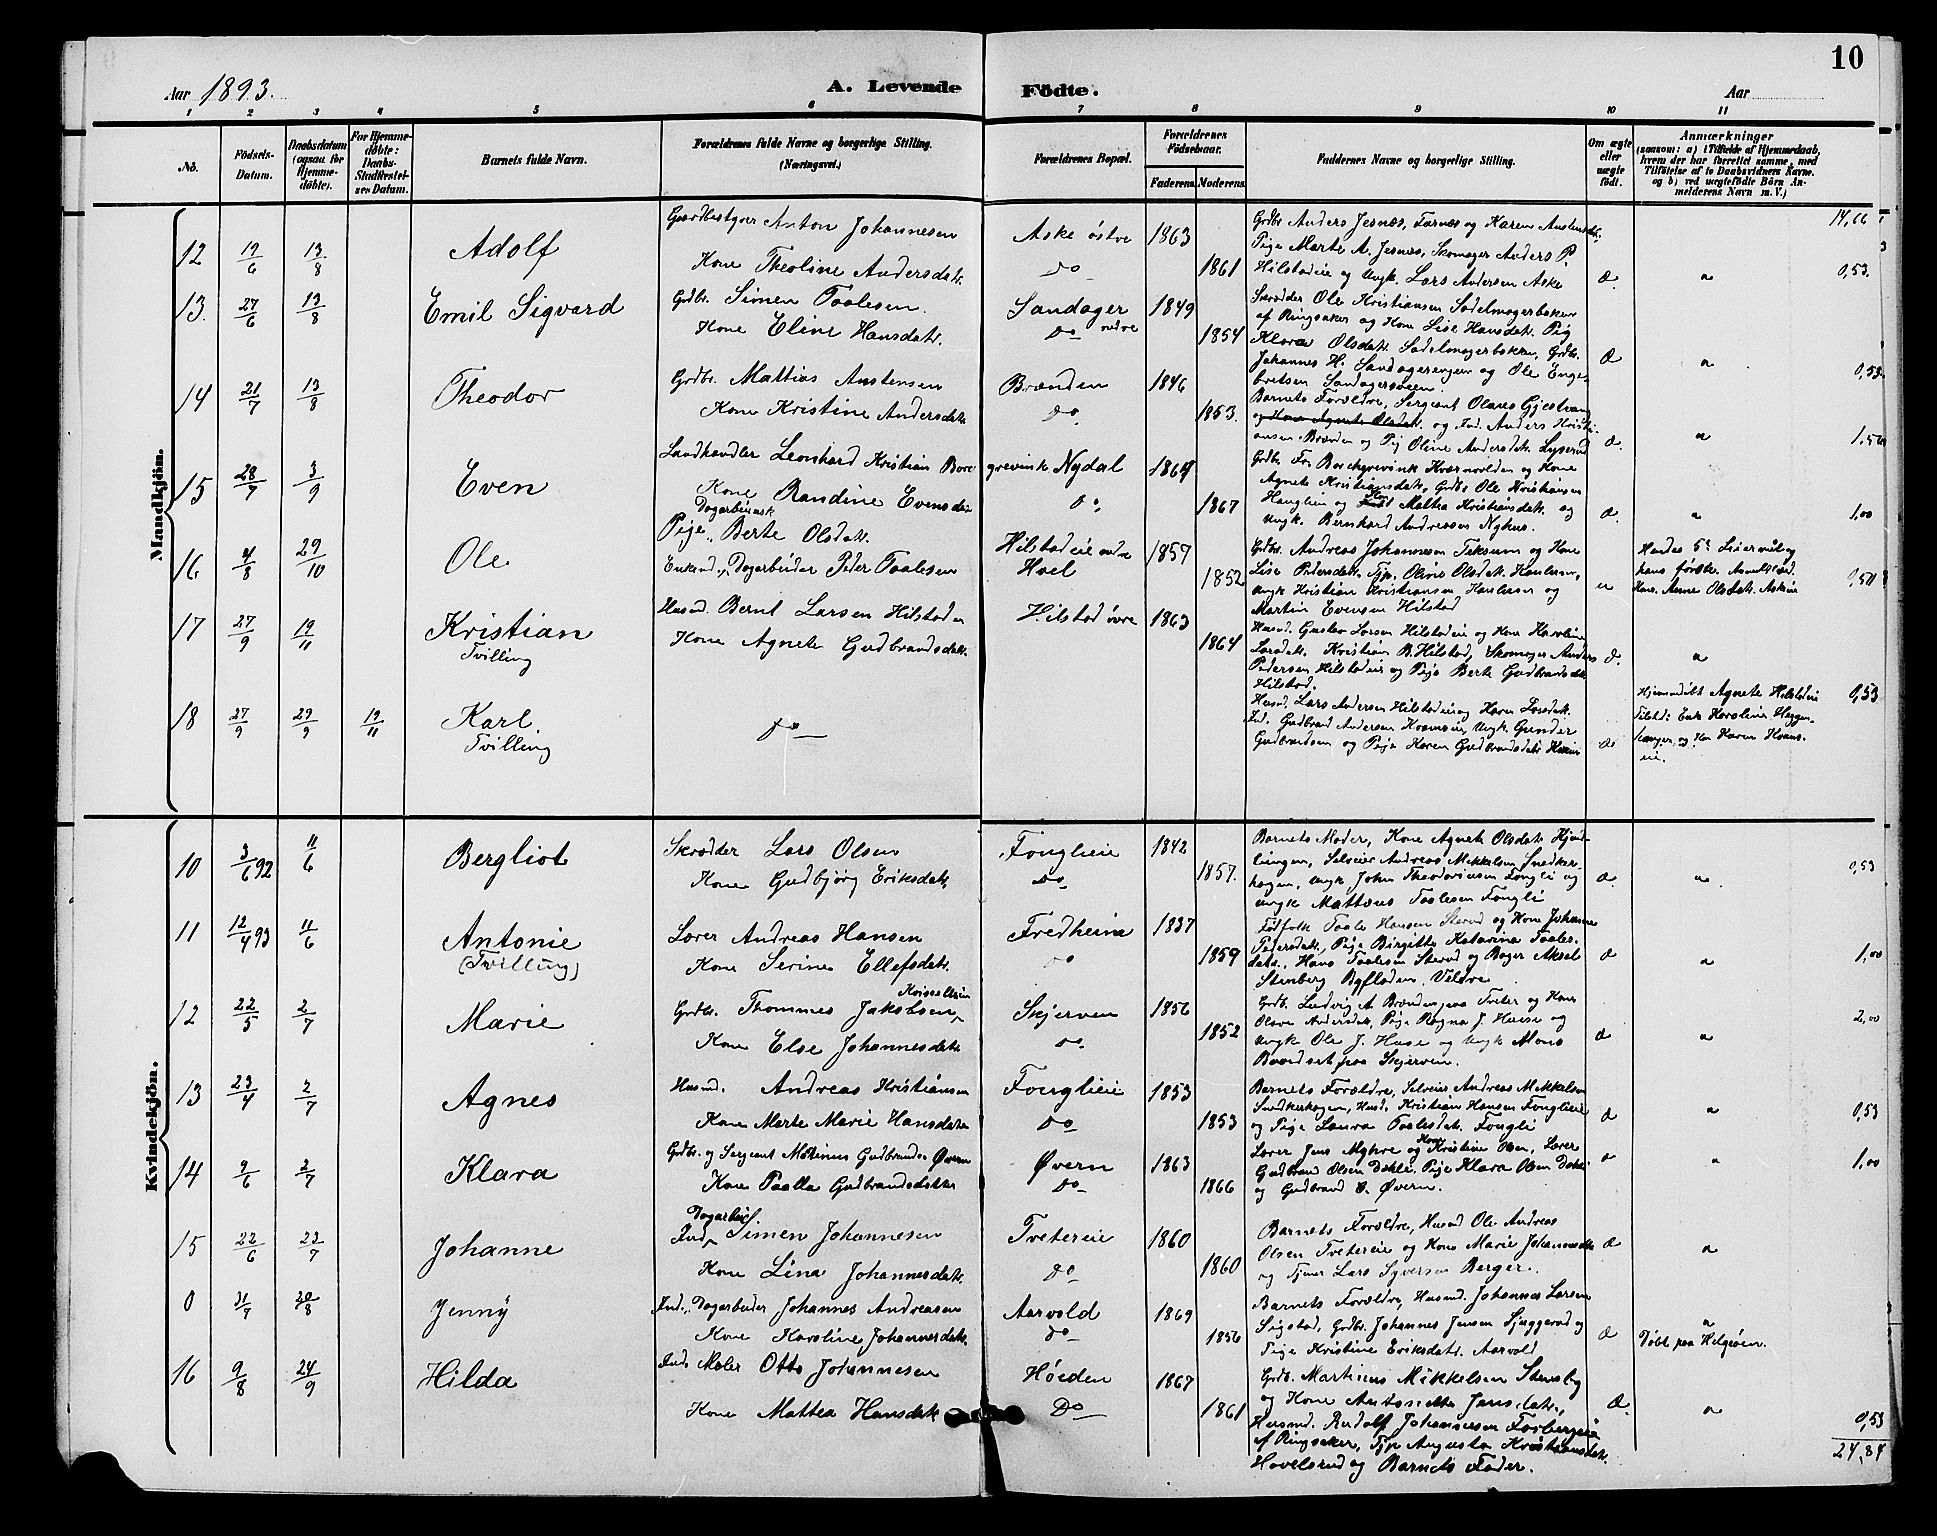 10
Aar 1893.
A. Levende Födte.
Aar
1 2 3 4 5 6 7 8 9 10 11
No.
Födsels-
Datum.
Daabsdatum
(ogsaa for
Hjemme-
döbte).
For Hjemme-
döbte:
Daabs-
Stadfæstel-
ses Datum.
Barnets fulde Navn.
Forældrenes fulde Navne og borgerlige Stilling.
(Næringsvei.)
Forældrenes Bopæl.
Forældrenes
Födselsaar.
Faderens. Moderens.
Faddernes Navne og borgerlige Stilling.
Om ægte
eller
uægte
födt.
Anmærkninger
(saasom: a) i Tilfælde af Hjemmedaab,
hvem der har forrettet samme, med
Tilföielse af to Daabsvidners Navne.
og b) ved uægtefödte Börn An-
melderens Navn m. V.)
Mandkjön.
14,66
12 19/6 13/8 Adolf
Gaardbestyrer Anton Johannesen
Kone Theoline Andersdatr.
Aske östre 1863
Do 1861
Grdbr. Anders Jesnæs, Farnæs og Karen
Pige Marte A. Jesnæs, Skomager Anders P.
Hilstadeie og Ungk. Lars Andersen Aske
Æ. " 0,53.
13. 27/6 13/8 Emil Sigvard
Grdbr. Simen Paalesen.
Kone Eline Hansdatr.
Sandager 1849
Do nedre 1854
Skrædder Ole Kristiansen Sadelmagerbakken
af Ringsaker og Kone Lise Hansdatr. Pig
Klara Olsdatr. Sadelmagerbakken, Grdbr.
Johannes H. Sandagerengen og Ole Enge-
bretsen Sandagersveen.
Æ " 0,53.
14 21/7 13/8 Theodor
Grdbr. Mattias Austensen
Kone Kristine Andersdatr.
Brænden 1846
Do. 1853.
Barnets Forældre, Sergeant Olaves Gjestvang
og Kone Agnete Olsdatr. og Ind. Anders Kristi-
ansen Brænden og Pig Oline Andersdatr. Lyserud
Æ " 1,50
15 28/7 3/9 Even
Landhandler Leonhard Kristian Borc
grevink Nydal 1864
Kone Randine Evensdatr
Do. 1867
Grdbr. Fr. Borchgrevink Kværnvolden og Kone
Agnete Kristiansdatr., Grdbr. Ole Kristiansen
Hauglien og Mathea Kristiansdatr. og
Ungk. Bernhard Andreasen Nyhus.
Æ. " 1,00
16 4/8 29/10 Ole
Dagarbeiersk
Pige, Berte Olsdatr.
Enkemd., Dagarbeider Peder Paalesen
Hilstadeie nedre 1857
Hoel 1852
Grdbr. Andreas Johannesen Teksum og Kone
Lise Pedersdatr. Tjp. Oline Olsdatr.
Ungk Kristian Kristiansen og
Martin Evensen Hilstad
u
Hendes 5te Leiermaal og
hans første. Anmelderen
Kone Anne Olsdatr.
0,50
17 27/9 19/11 Kristian
Tvilling
Husmd. Bernt Larsen Hilstad
Kone Agnete Gudbrandsdatr.
Hilstad övre 1863
1864
Husmd. Gustav Larsen Hilstadeie og Kone Karoline
Larsdatr. Kristian B. Hilstad, Skomager Anders
Pedersen Hilstadeie og Pige Berte Gudbrandsdatr
Hilstad.
Æ. "
18 27/9 29/9 19/11 Karl
Tvilling
Do
Husmd. Lars Andersen Hilstadeie og Karen
Ind. Gudbrand Andersen Ungk. Gunder
Gudbrandsen og Pige Karen Gudbrandsdatr
Æ
Hjemmedöbt Agnete Hilstadeie
Tilsted: Enke Karoline
og Karen
eie.
0,53
Kvindekjön.
10 3/6 92 11/6 Bergliot
Skrædder Lars Olsen
Kone Gudbjörg Eriksdatr.
Fonglieie 1842
Do 1857.
Barnets Moder, Kone Agnete Olsdatr.
Selveier Andreas Mikkelsen Snedker-
hagen, Ungk John Theodoriusen Fongli og
Ungk Mattæus Paalesen Fongli
Æ. " 0,53
11 12/4 93 11/6 Antonie
(Tvilling)
Lærer Andreas Hansen
Kone Serine Ellefsdatr.
Fredheim 1837
Do 1859
Födfolk Paale Hansen Sterud og Kone Johanne
Pedersdatr., Pige Birgitte Katarina Paales-
datr., Hans Paalesen Sterud og Bager Aksel
Stenberg Byfloden, Veldre
Æ " 1,00
12 22/5 2/7 Marie
Grdbr. Thommes Jakobsen
Kone Else Johannesdatr.
Skjerven 1856
Do. 1852
Grdb. Ludvig A. Brænden, paa Tveter og Kone
Olava Andersdatr., Pige Ragna J. Huse og
Ungk Ole J. Huse og Ungk Mons
Baardset paa Skjerven.
Æ " 2,00
13 23/4 2/7 Agnes
Husmd. Andreas Kristiansen
Kone Marte Marie Hansdatr
Fonglieie 1853
Do 1853
Barnets Forældre, Selveier Andreas Mikkelsen
Snedkerhagen, Husd. Kristian Hansen Fonglieie
og Pige Laura Paalesdatr. Fongli
Æ " 0,53
14 9/6 2/7 Klara
Grdbr. og Sergeant Matinus Gudbrandsen Øvern
Kone Paalla Gudbrandsdatter
Øvern 1863
Do 1866
Lærer Jens Myhre og Kone Kristine Olsen, Lærer
Gudbrand Olsen Dehli, Pige Klara Olsen Dehli
og Gudbrand O. Øvern.
Æ " 1,00
15 22/6 23/7 Johanne
Dagarbeid.
Ind., Simen Johannesen
Kone Lina Johannesdatr.
Tvetereie 1860
Do 1860
Barnets Forældre, Husmd Ole Andreas
Olsen Tvetereie og Kone Marie Johannesdatr
og Tjener Lars Syversen Berger.
Æ "
0 31/7 20/8 Jenny
Ind., Dagarbeider Johannes Andreasen
Kone Karoline Johannesdatr.
Aarvold 1869
Do 1856
Barnets Forældre, Husmd. Johannes Larsen
Sigstad, Grdbr. Johannes Jensen Sjuggerud og
Pige Kristine Eriksdatr. Aarvold
Æ "
Döbt paa Helgeöen.
16 9/8 24/9 Hilda
Ind. Maler Otto Johannesen
Kone Mattea Hansdatr
Höiden 1867
Do 1861
Grdb. Martinus Mikkelsen Stensby
og Kone Antonette Jensdatr.,
Husmd. Rudolf Johannesen Forbergeie
af Ringsaker, Tjp Augusta Kristiansdatr.
Hovelsrud og Barnets Fader.
Æ. " 0,53
24,84